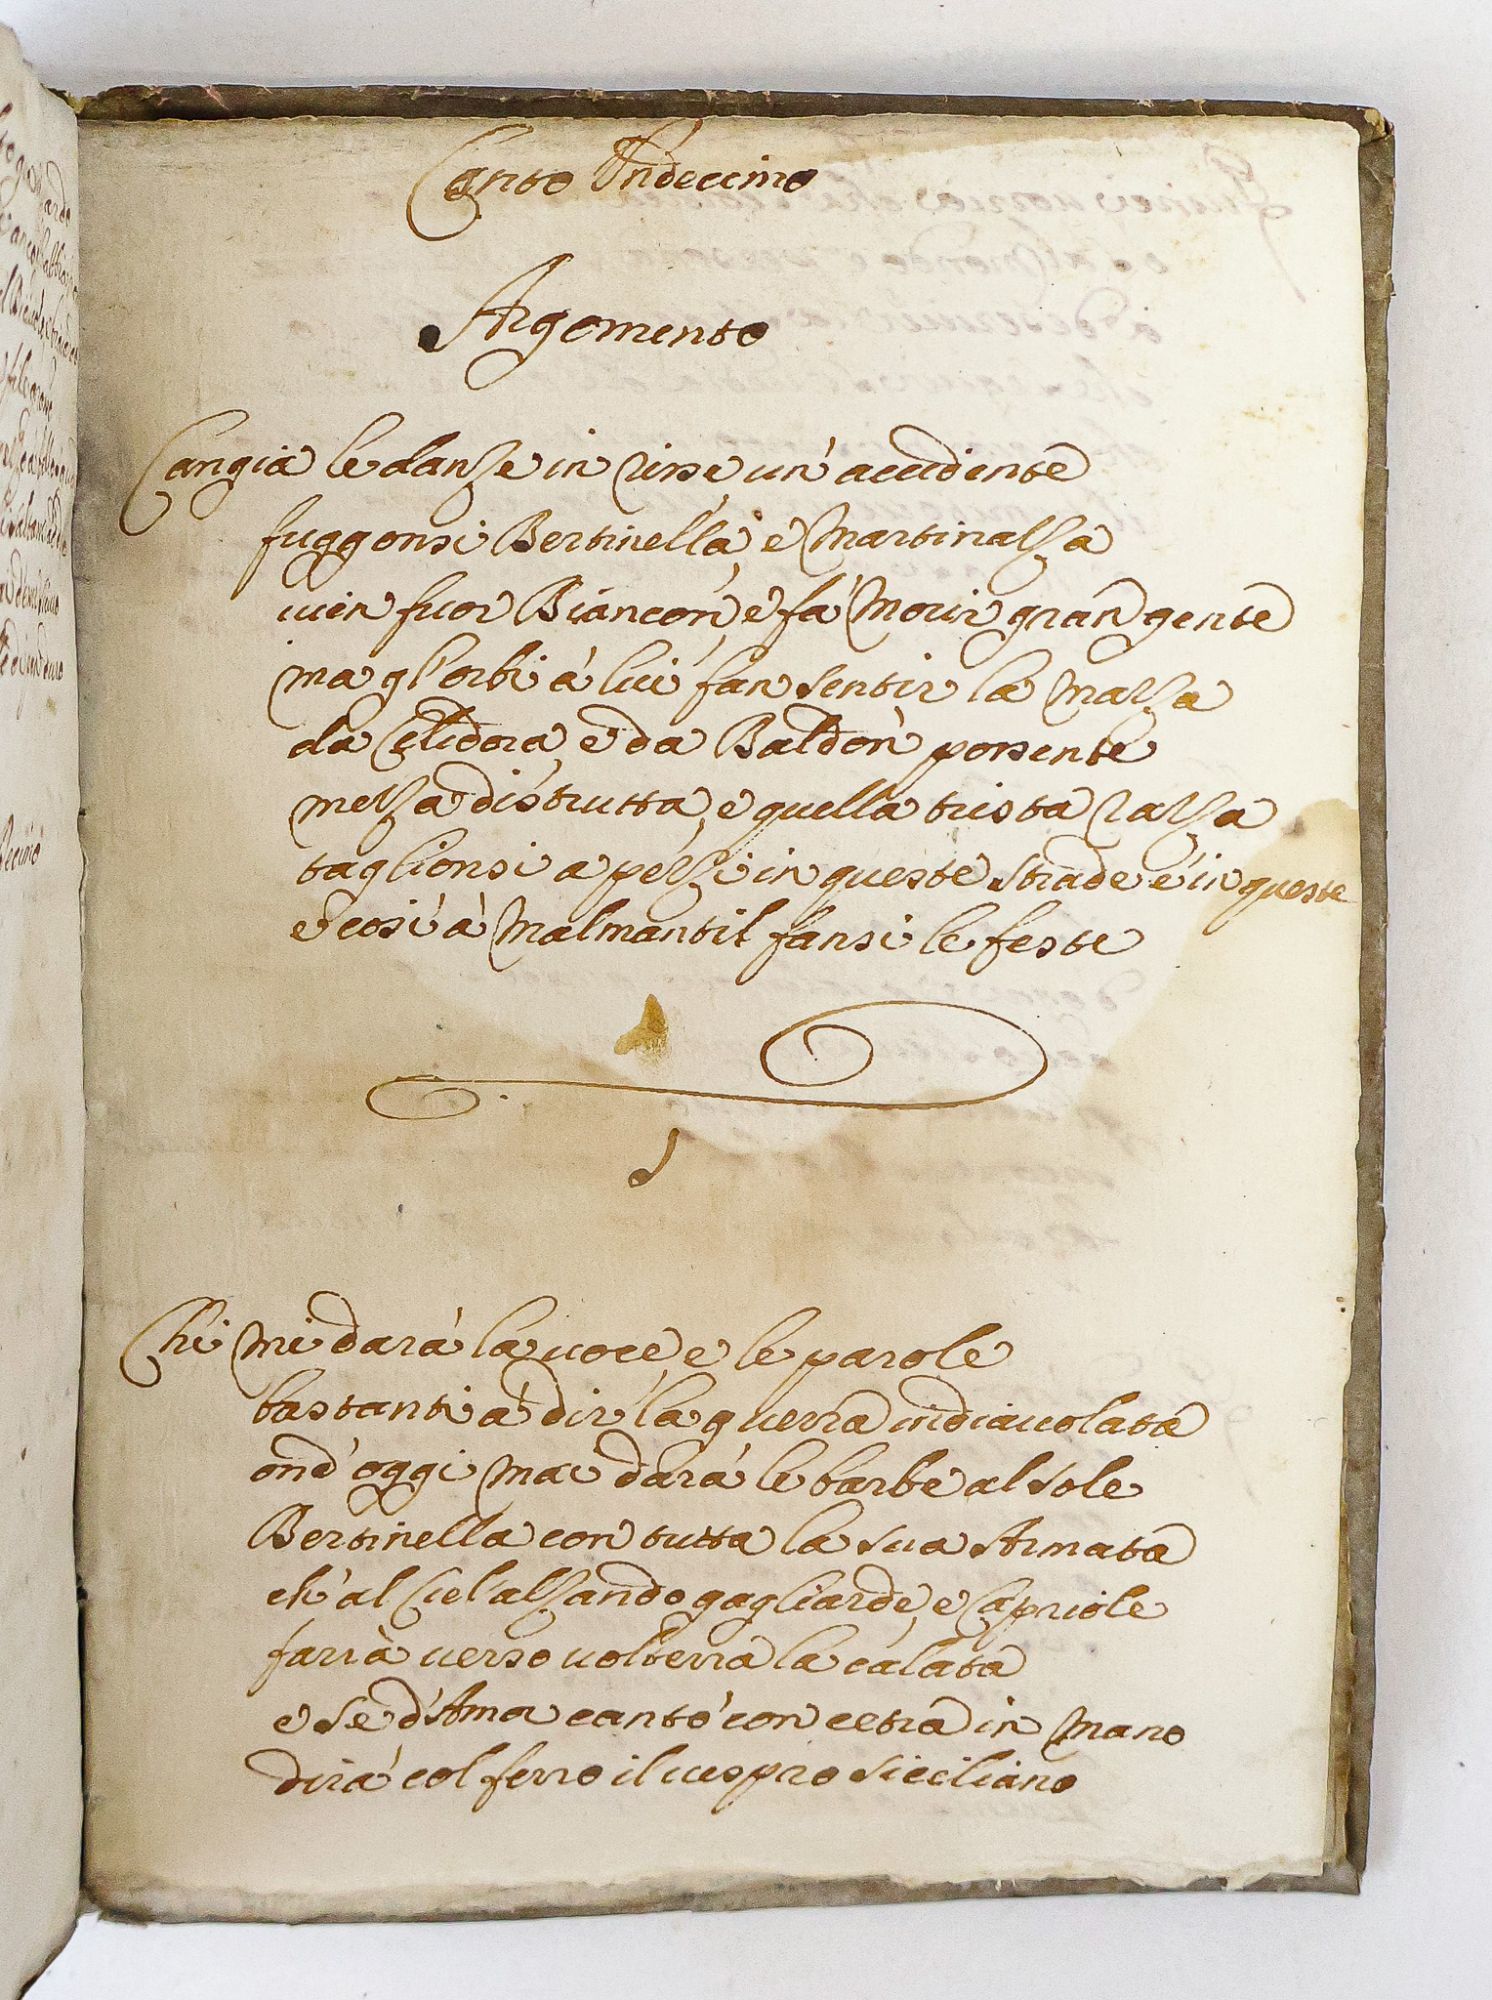 Canto Undecimo
Argomento
Cangia le danze in risse un' accidente
fuggonsi Bertinella, e Martinazza
uien fuor Biancon, e fa' morir gran gente
ma gl'orbi à lui fan sentir la mazza
da Celidora, e da Baldon possente
mezza distrutta, e quella trista razza
taglionsi a pezzi in queste strade e in queste
e così à Malmantil fansi le feste
Chi mi darà la uoce e le parole
bastanti à dir la guerra indiauolata
ond'oggi mai darà le barbe al sole
Bertinella con tutta la sua Armata
ch'al Ciel alzando gagliarde, e Capriole
farrà uerso uolterra la calata
e se d'Amor cantò con cetra in mano
dirà col ferro il uespro siciliano